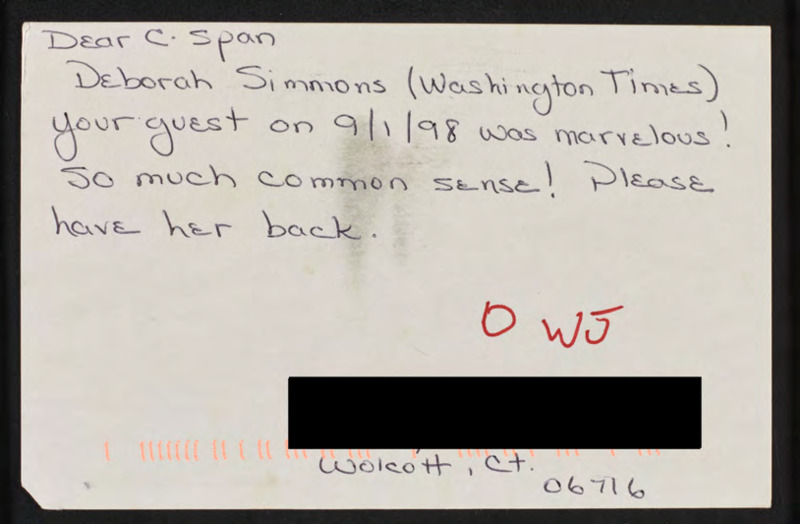 Dear C. Span
Deborah Simmons (Washington Times)
your guest on 9/1/98 was marvelous!
So much common sense! Please
have her back.
O WJ
Wolcott, Ct.
06716